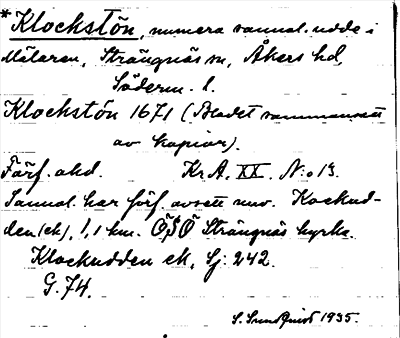 *Klockstön, numera sannol. udde i
Mälaren, Strängnäs sn, Åkers hd,
Söderm. l.
Klockstön 1671 (Bladet sammansatt
av kopior).
Förf. okd. Kr.A. XX. N:o 13.
Sannol. har förf. avsett nuv. Kockud-
den (ek), 1,1 km. ÖSÖ Strängnäs kyrka.
Klockudden ek, Sj: 242.
G. 74.
S. Sundquist 1935.